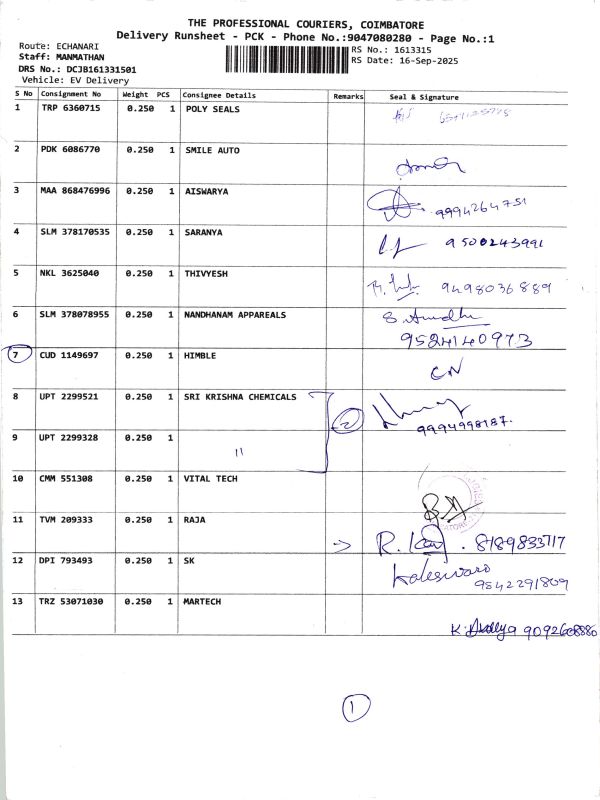 THE PROFESSIONAL COURIERS, COIMBATORE
Delivery Runsheet - PCK - Phone No.:9047080280 - Page No.:1
Route: ECHANARI
Staff: MANMATHAN
DRS No.: DCJB161331501
Vehicle: EV Delivery
RS No.: 1613315
RS Date: 16-Sep-2025
S No Consignment No Weight PCS Consignee Details Remarks Seal & Signature
1 TRP 6360715 0.250 1 POLY SEALS
2 PDK 6086770 0.250 1 SMILE AUTO
3 MAA 868476996 0.250 1 AISWARYA
9994264751
4 SLM 378170535 0.250 1 SARANYA
9500243991
5 NKL 3625040 0.250 1 THIVYESH
9498036889
6 SLM 378078955 0.250 1 NANDHANAM APPAREALS
9524140973
7 CUD 1149697 0.250 1 HIMBLE
CN
8 UPT 2299521 0.250 1 SRI KRISHNA CHEMICALS
2
9994998187.
9 UPT 2299328 0.250 1 "
10 CMM 551308 0.250 1 VITAL TECH
11 TVM 209333 0.250 1 RAJA
-> R. 8189833717
12 DPI 793493 0.250 1 SK
9542291809
13 TRZ 53071030 0.250 1 MARTECH
K. 9092608880
1